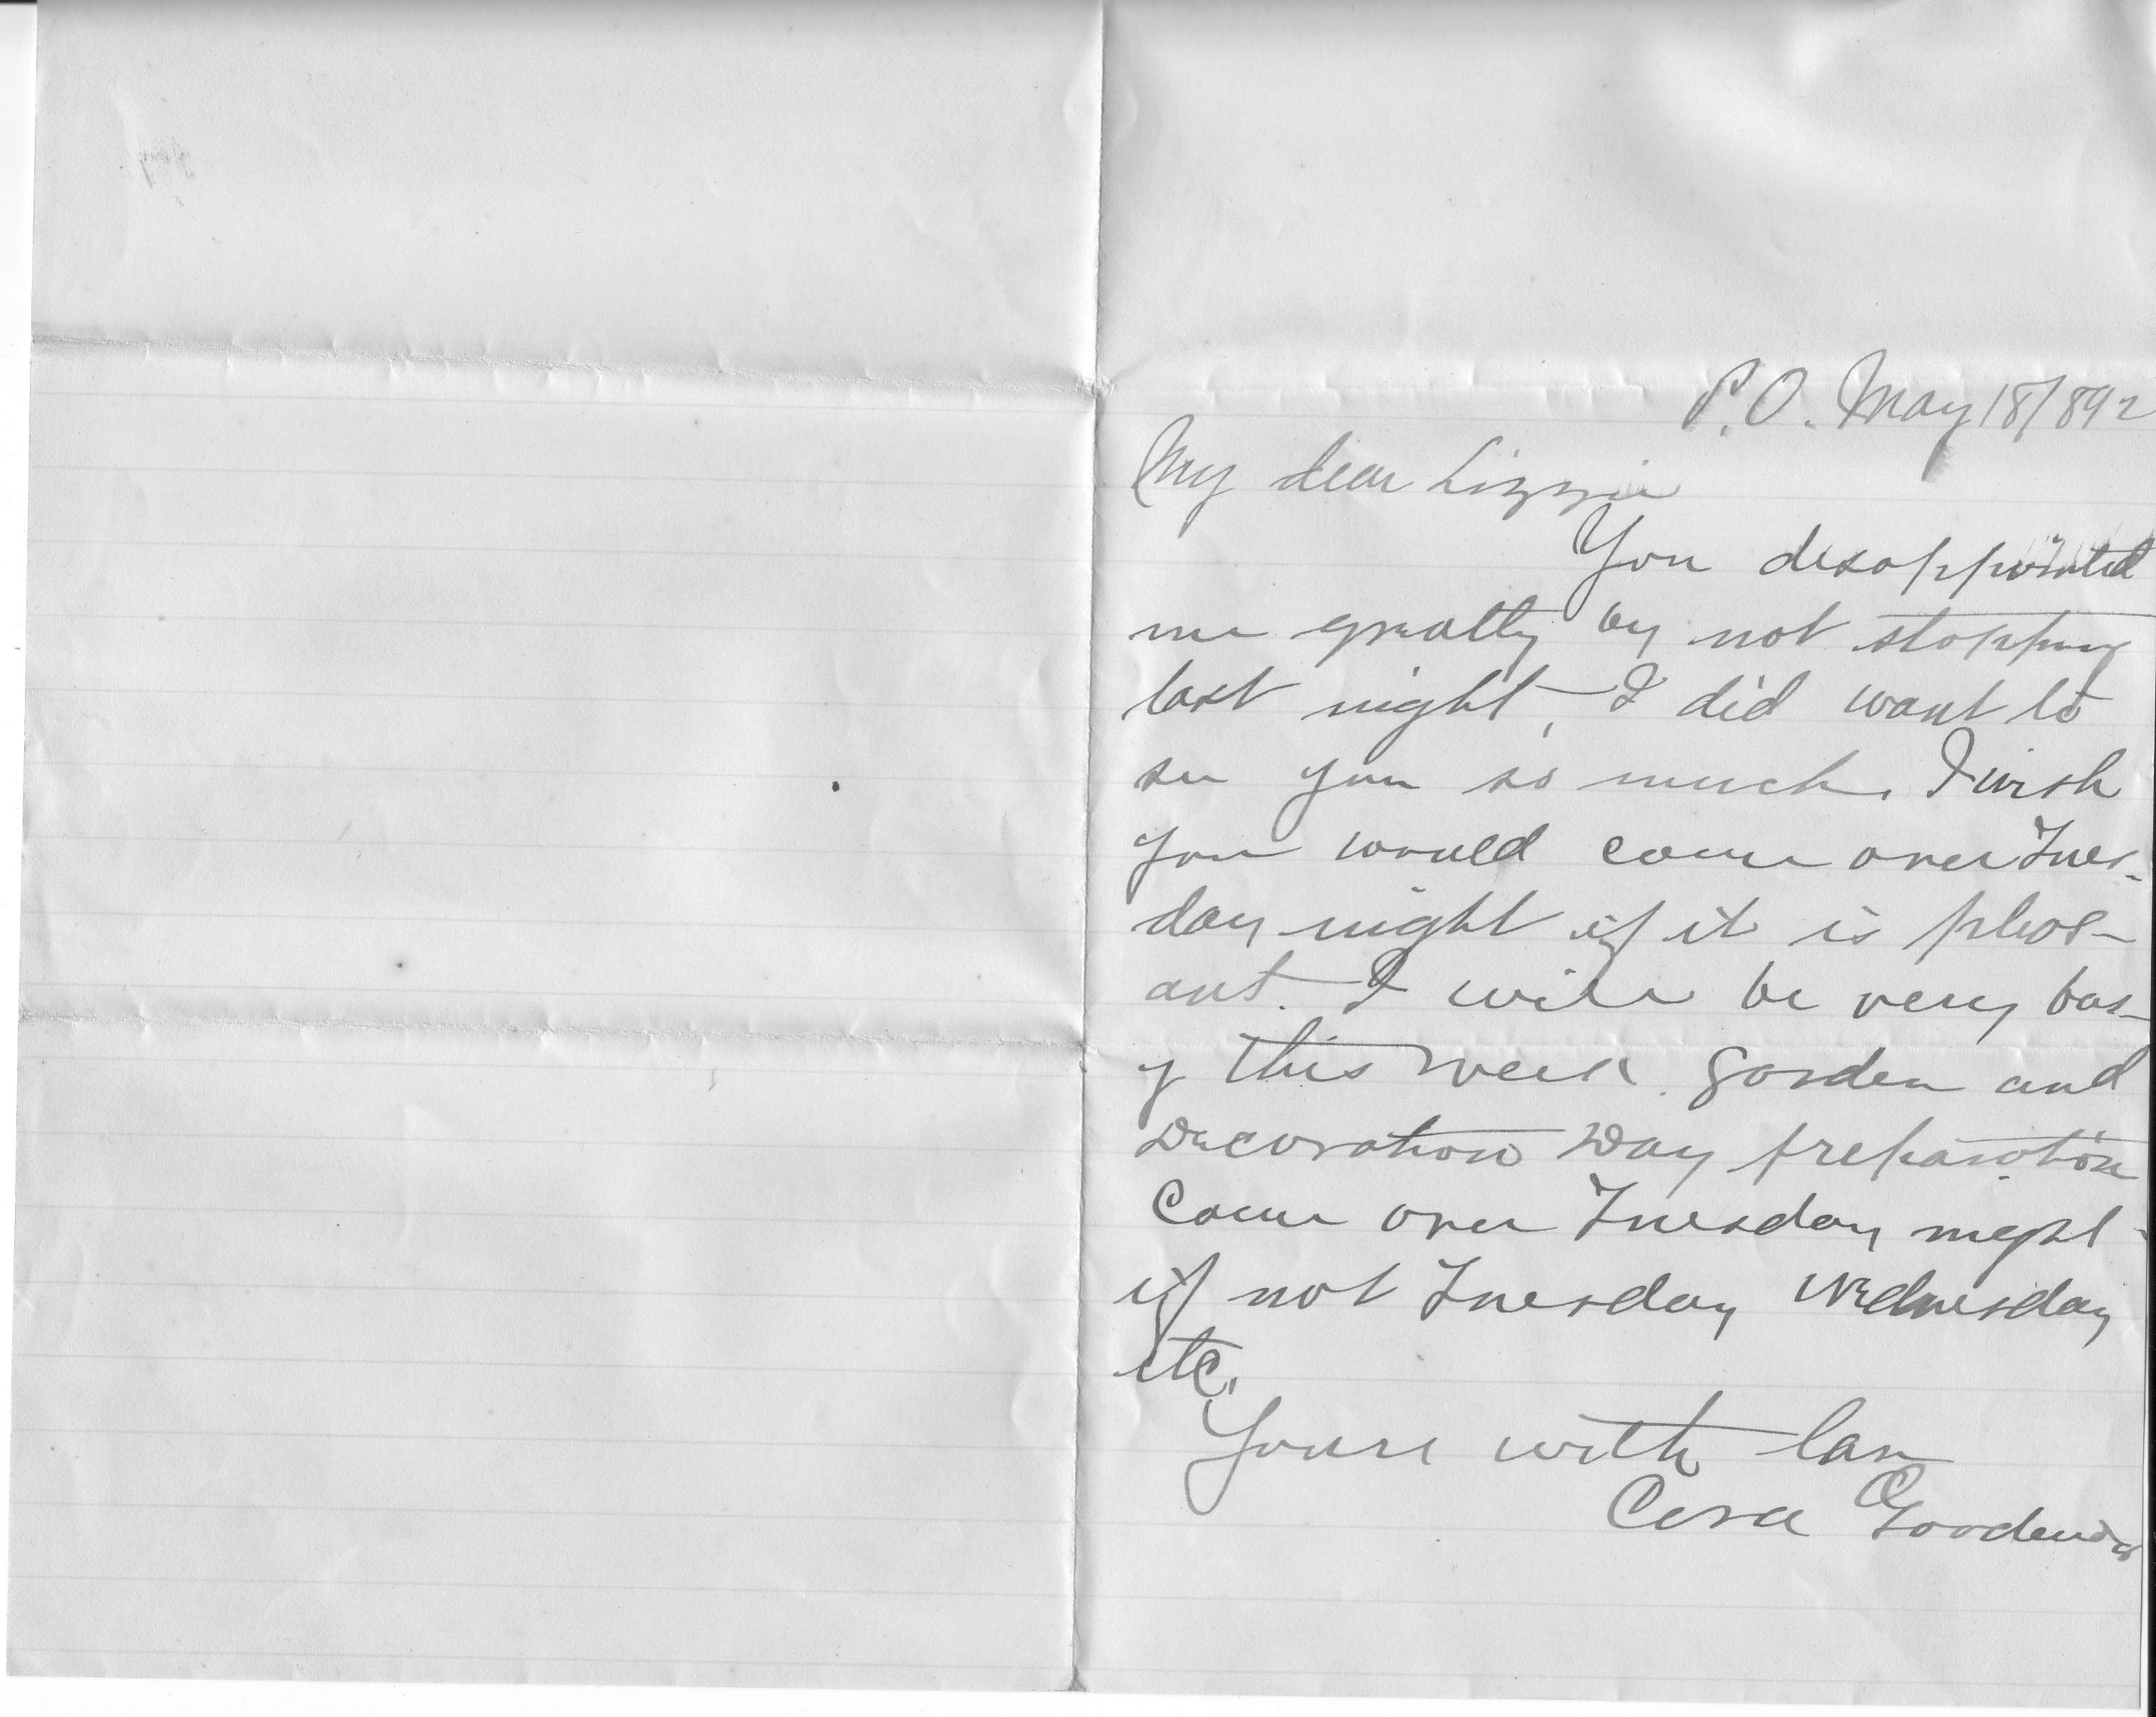 P.O. May 18/892
My dear Lizzie
You disappointed
me greatly by not stopping
last night, I did want to
see you so much. I wish
you would come over Tues-
day night if it is pleas-
ant. I will be very bus-
y this week. garden and
Decoration Day preparation
Come over Tuesday night -
if not Tuesday Wednesday
etc.
Yours with love
Cora